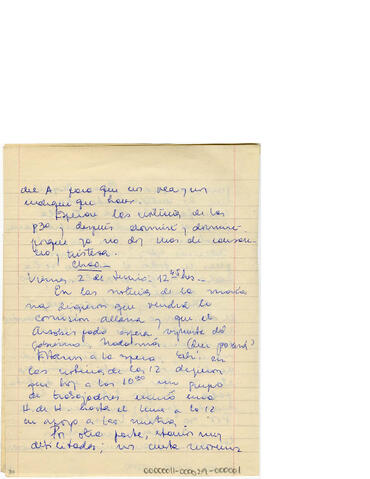 del A. para que nos vea y nos
indique que hacer.
Esperaré las noticias de las
y después dormiré y dormiré
porque ya no doy más de cansan-
cio y tristeza.
Chao.-
Viernes, 2 de Junio. 12
En las noticias de la maña-
na dijeron que vendrá la
comisión allana y que el
Arzobispado espera respuesta del
gobierno. Nada más. (Qué pasará?)
Estamos a la espera. Ahí en
las noticias de las 12 dijeron
que hoy a las 10 30 un grupo
de trabajadores inició una
H. de H. hasta el lunes a las 12
en apoyo a las nuestras.
Por otra parte, estamos muy
debilitadas; nos cuesta movernos
00000011-000029-000001